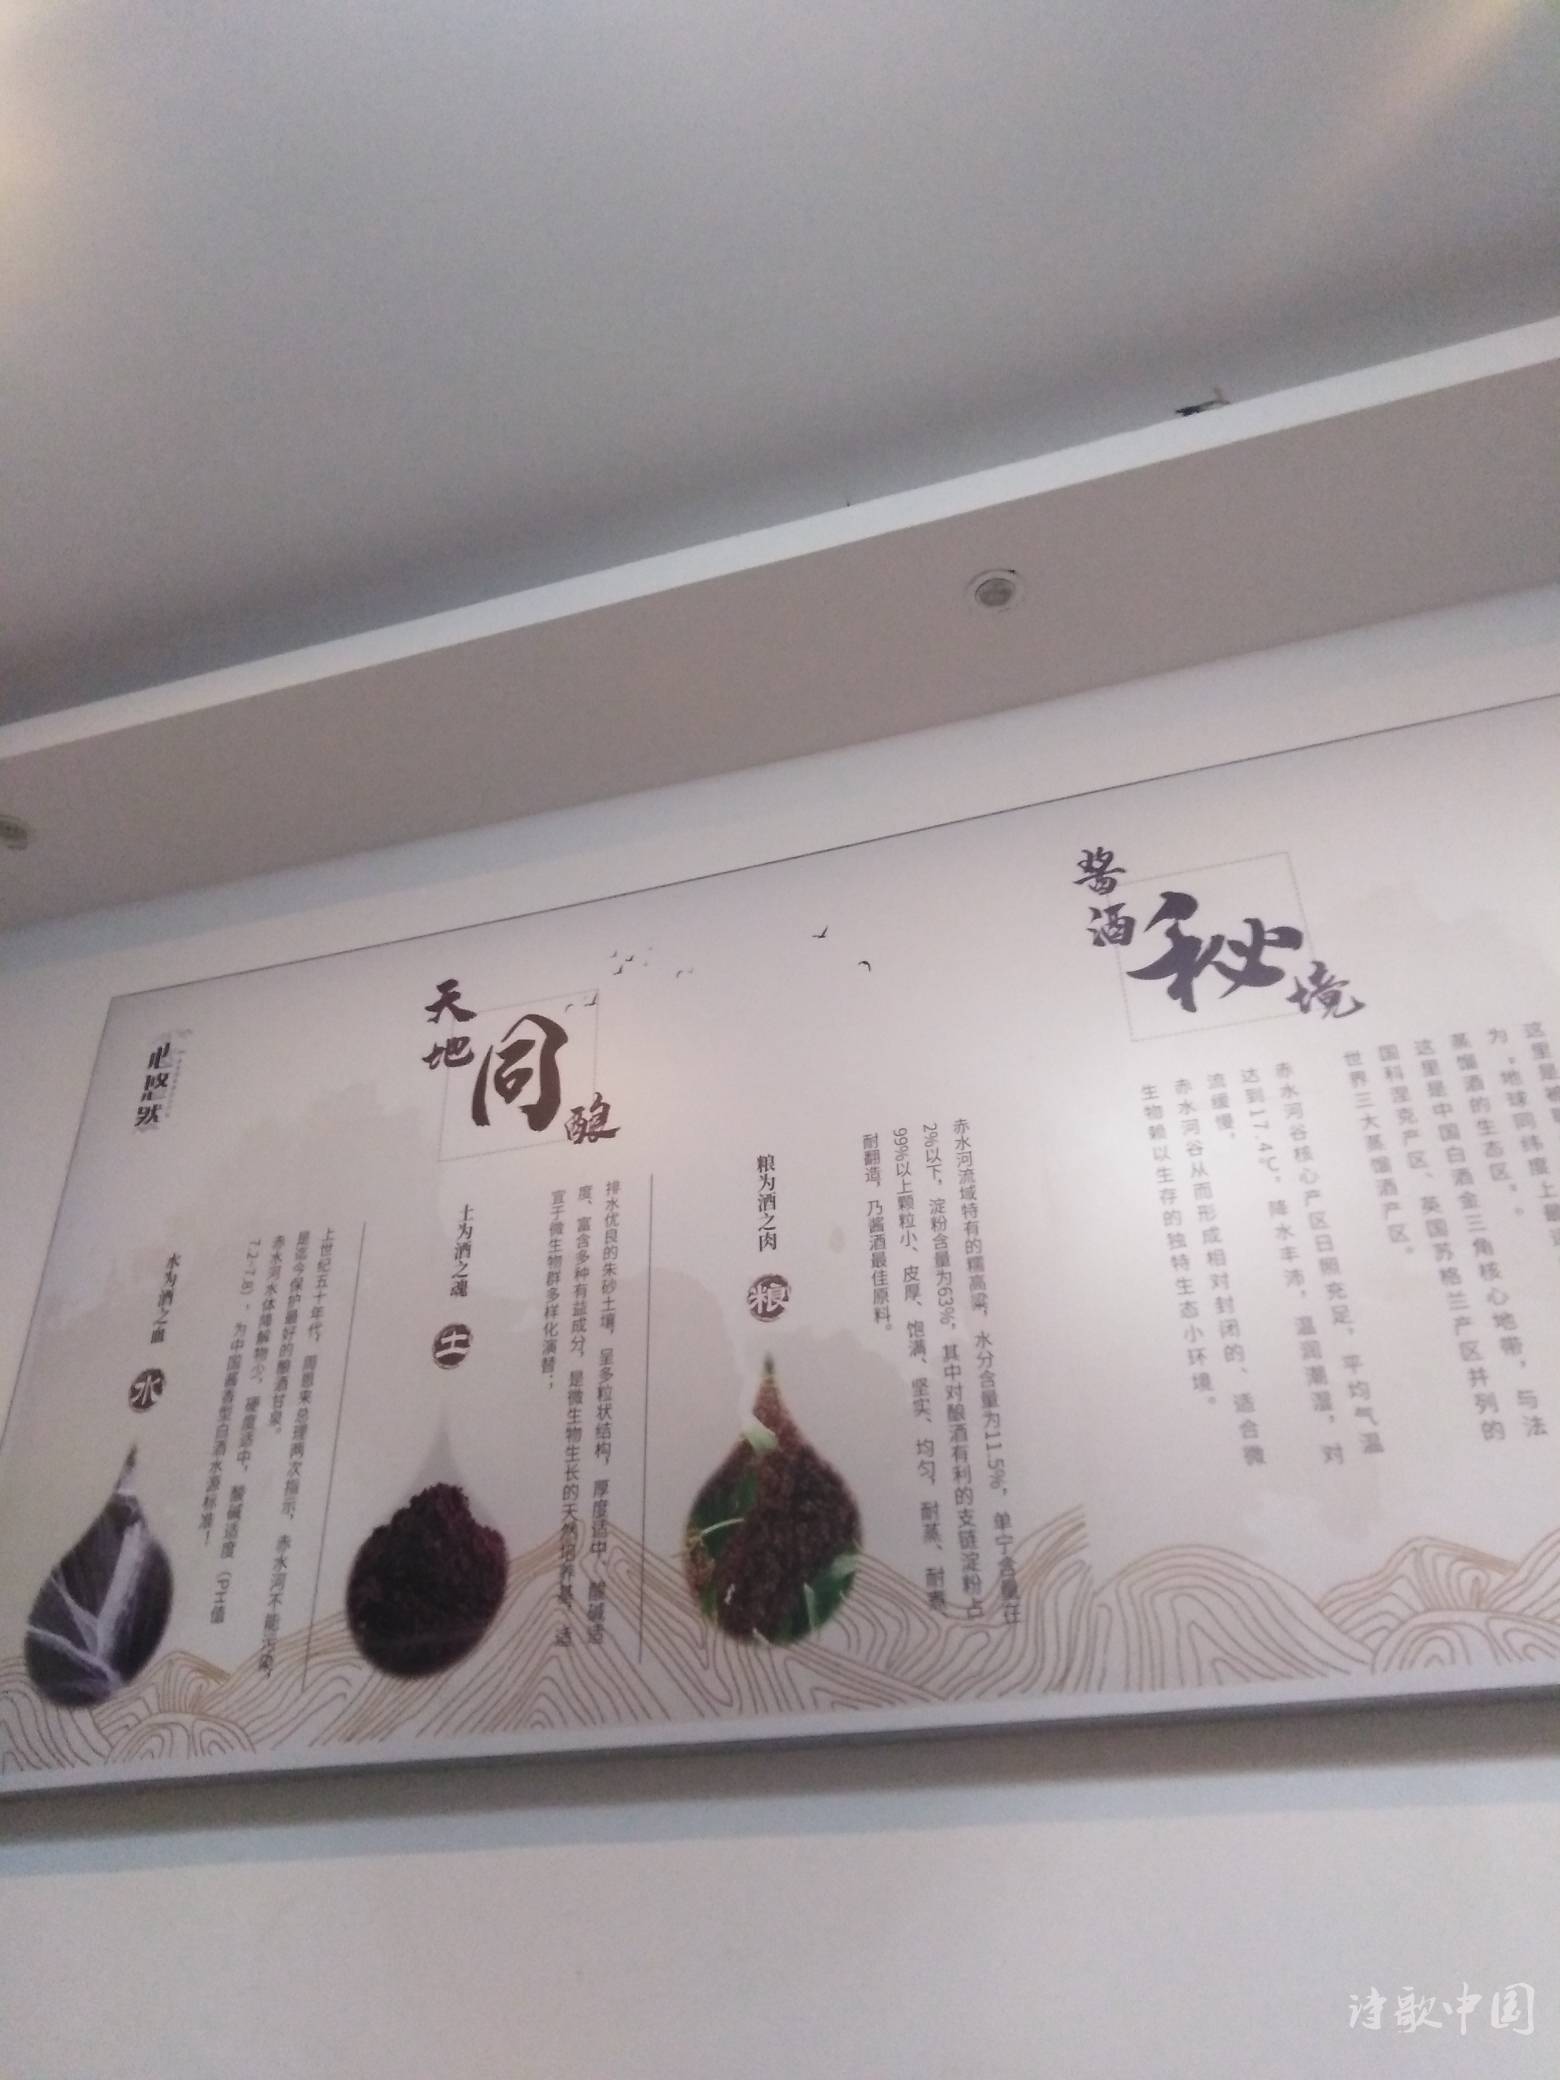 酱酒秘境
为"地球同纬度上最
蒸馏酒的生态区"。
这里是中国白酒金三角核心地带，与法
国科涅克产区、英国苏格兰产区并列的
世界三大蒸馏酒产区。
赤水河谷核心产区日照充足，平均气温
达到17.4℃，降水丰沛，温润潮湿，对
流缓慢，
赤水河谷从而形成相对封闭的、适合微
生物赖以生存的独特生态小环境。
天地同酿
粮为酒之肉
粮
赤水河流域特有的糯高粱，水分含量为11.5%，单宁含量在
2%以下，淀粉含量为63%，其中对酿酒有利的支链淀粉占
99%以上颗粒小、皮厚、饱满、坚实、均匀，耐蒸、耐煮、
耐翻造，乃酱酒最佳原料。
土为酒之魂
土
排水优良的朱砂土壤，呈多粒状结构，厚度适中、酸碱适
度、富含多种有益成分，是微生物生长的天然培养基，适
宜于微生物群多样化演替；
水为酒之血
水
上世纪五十年代，周恩来总理两次指示，赤水河不能污染，
是迄今保护最好的酿酒甘泉。
赤水河水体降解物少，硬度适中，酸碱适度（PH值
7.2-7.8），为中国酱香型白酒水源标准！
心悠然
诗歌中国